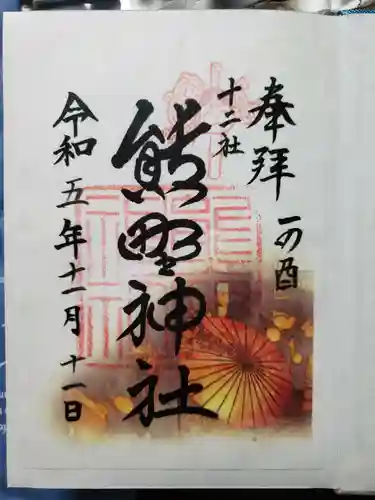 奉拝
一の酉
十二社
熊野神社
令和五年十一月十一日